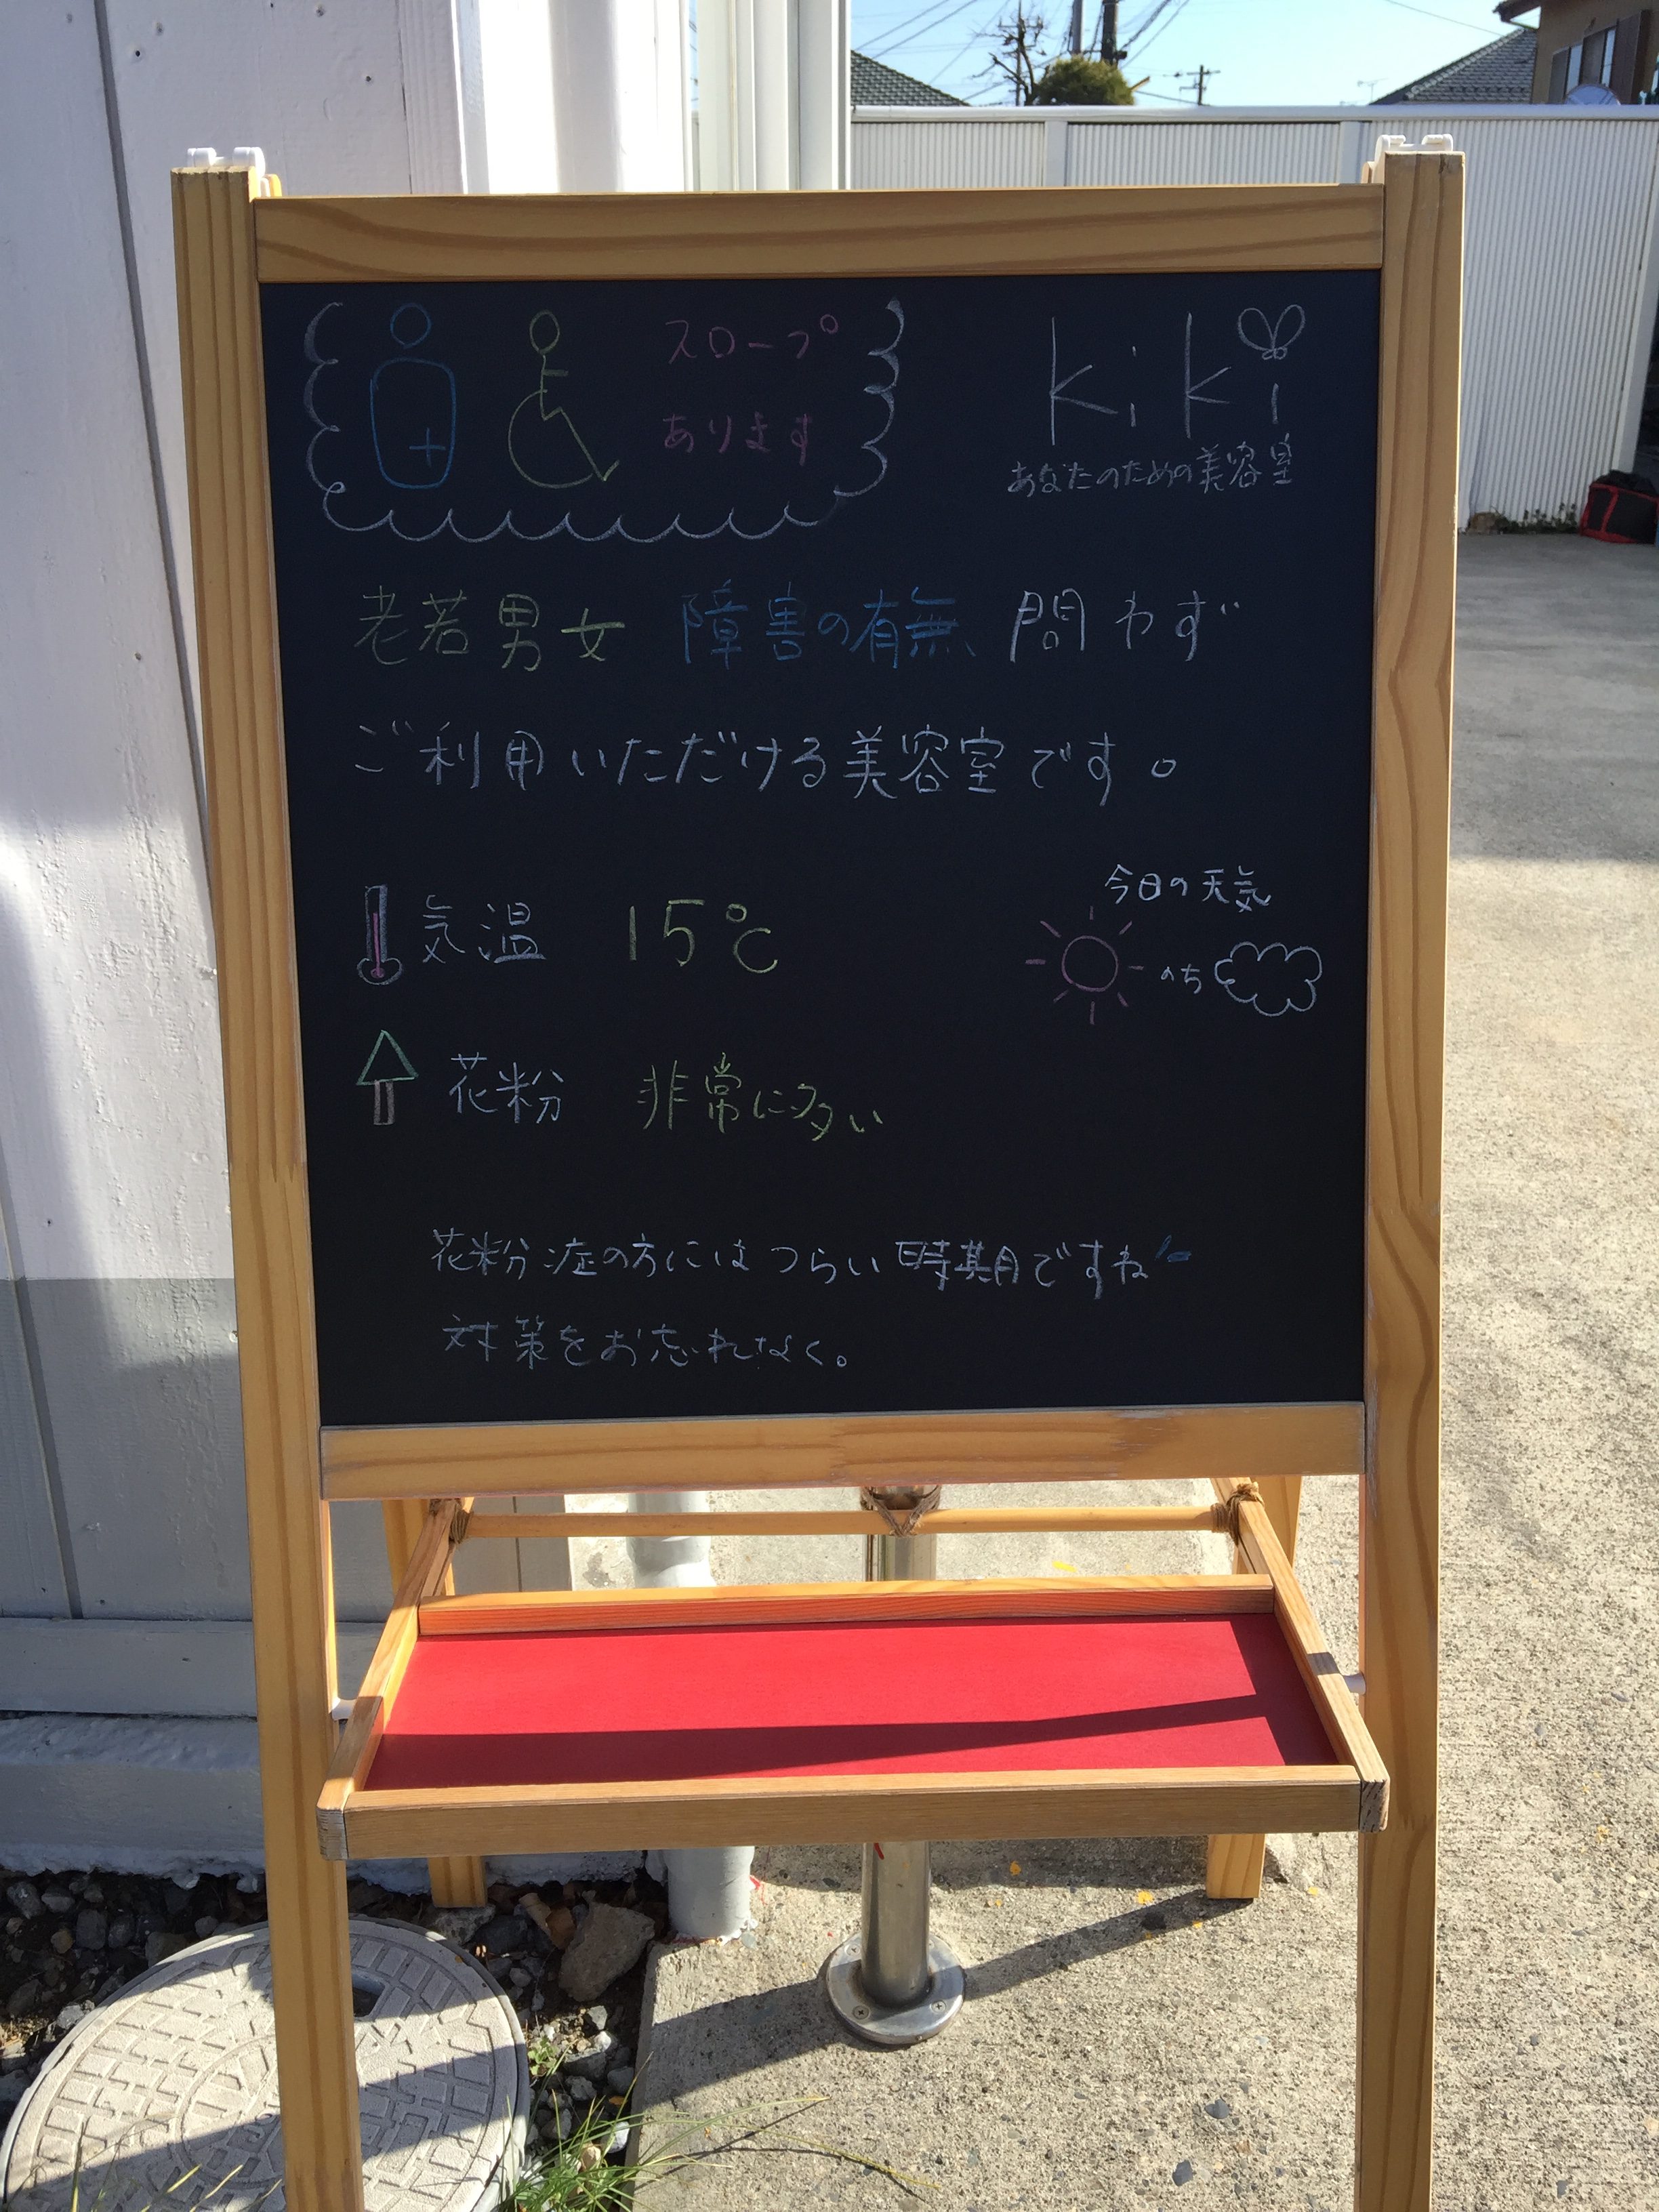 スロープ
あります
kiki
あなたのための美容室
老若男女 障害の有無 問わず
ご利用いただける美容室です。
気温 15℃
今日の天気
のち
花粉 非常に多い
花粉症の方にはつらい時期ですね
対策をお忘れなく。